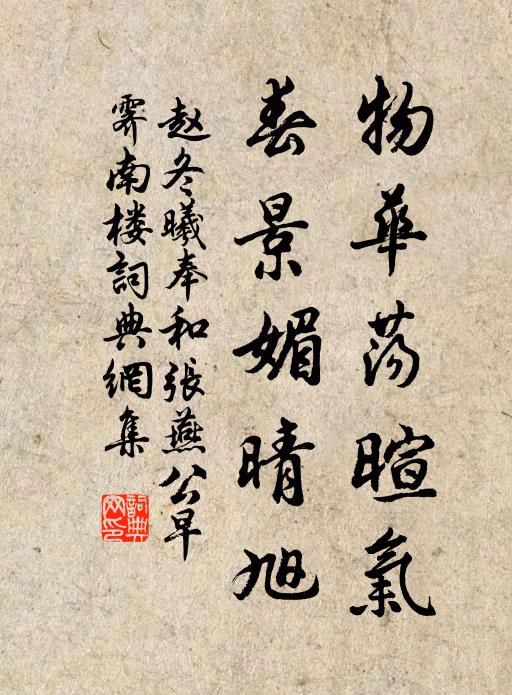 物華蕩暄氣
春景媚晴旭
赵冬曦奉和張燕公早
霽南楼詞典網集
詞典网印